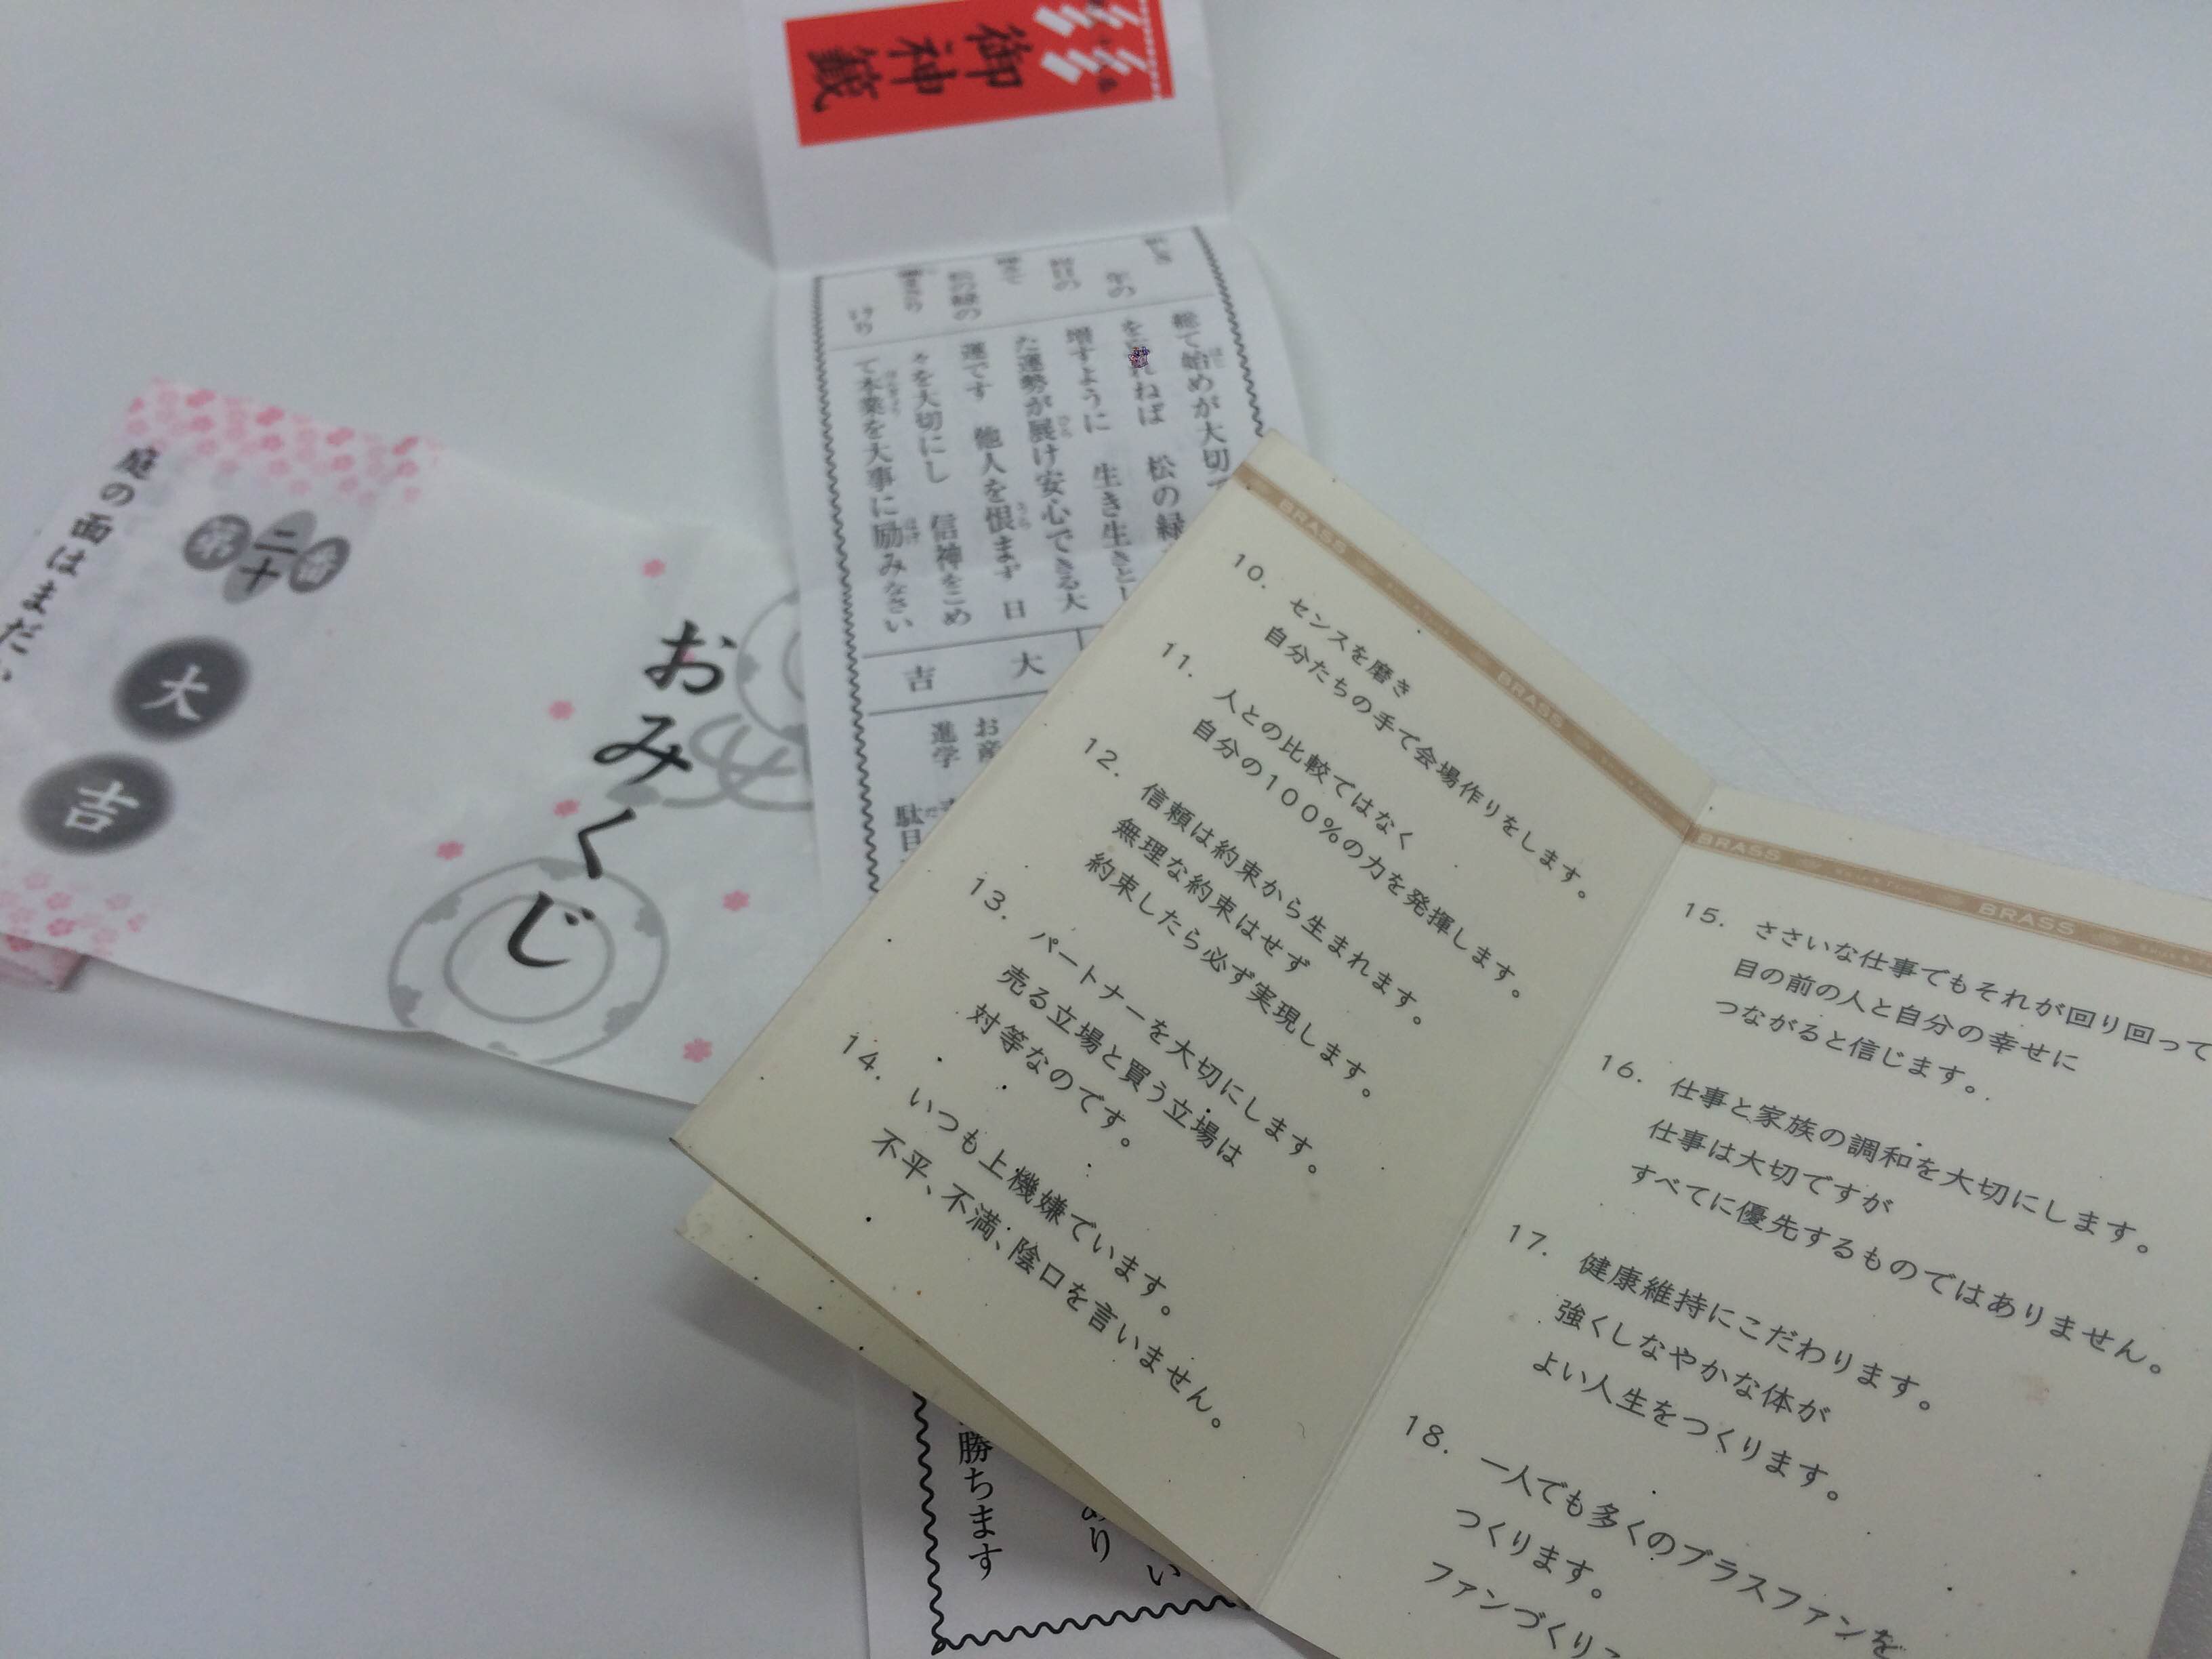 御神籤
総て始めが大切
をれねば 松の緑
増すように 生き生きとし
た運勢が展け安心できる大
運です 他人を恨まず 日
々を大切にし 信神をこめ
て本業を大事に励みなさい
大吉
お産
進学
駄目
勝ちます
あり
い
おみくじ
第二十番
大吉
庭の面はまだ
BRASS
BRASS
10. センスを磨き
自分たちの手で会場作りをします。
11. 人との比較ではなく
自分の100%の力を発揮します。
12. 信頼は約束から生まれます。
無理な約束はせず
約束したら必ず実現します。
13. パートナーを大切にします。
売る立場と買う立場は
対等なのです。
14. いつも上機嫌でいます。
不平、不満、陰口を言いません。
BRASS
BRASS
15. ささいな仕事でもそれが回り回って
目の前の人と自分の幸せに
つながると信じます。
16. 仕事と家族の調和を大切にします。
仕事は大切ですが
すべてに優先するものではありません。
17. 健康維持にこだわります。
強くしなやかな体が
よい人生をつくります。
18. 一人でも多くのブラスファンを
つくります。
ファンづくり